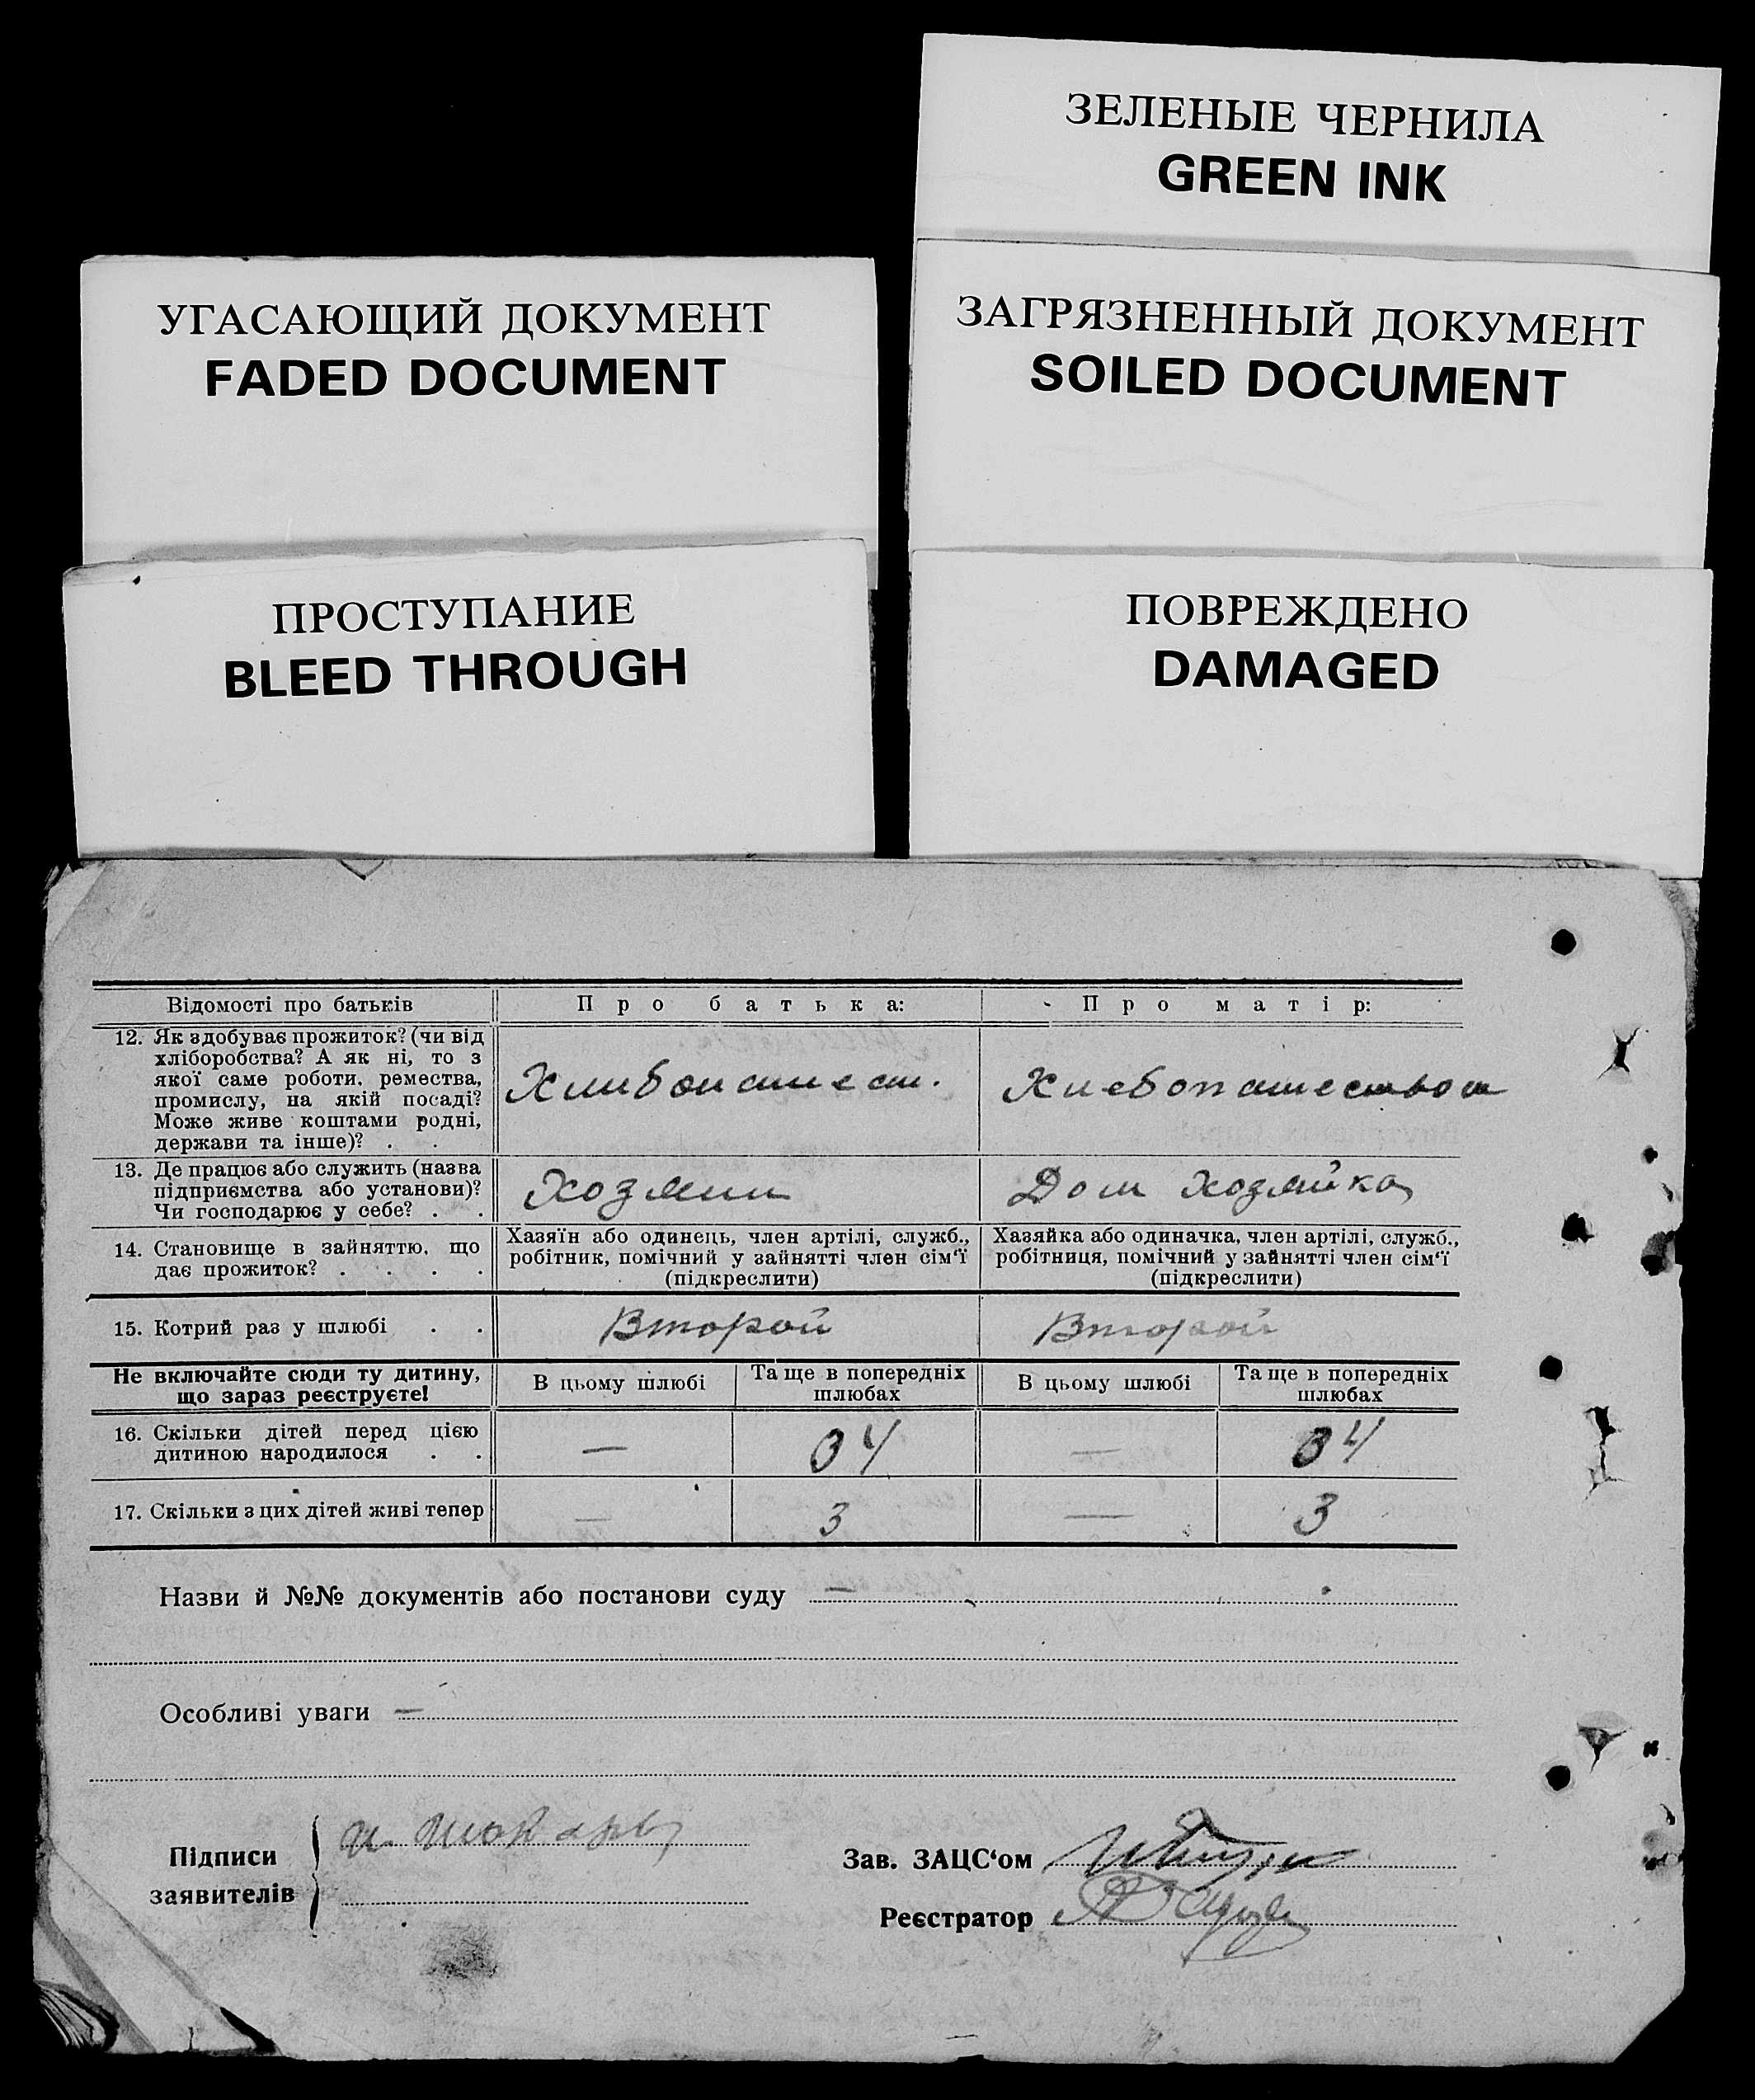 ЗЕЛЕНЫЕ ЧЕРНИЛА
GREEN INK
УГАСАЮЩИЙ ДОКУМЕНТ
FADED DOCUMENT
ЗАГРЯЗНЕННЫЙ ДОКУМЕНТ
SOILED DOCUMENT
ПРОСТУПАНИЕ
BLEED THROUGH
ПОВРЕЖДЕНО
DAMAGED
Відомості про батьків
Про батька:
Про матір:
12. Як здобуває прожиток? (чи від
хліборобства? А як ні, то з
якої саме роботи, ремества,
промислу, на якій посаді?
Може живе коштами родні,
держави та інше)? . .
Хлибопашест.
Хлебопашеством
13. Де працює або служить (назва
підприємства або установи)?
Чи господарює у себе? . .
Хозяин
Дом хозяйка
14. Становище в зайняттю, що
дає прожиток? . . . .
Хазяїн або одинець, член артілі, служб.,
робітник, помічний у зайнятті член сім‘ї
(підкреслити)
Хазяйка або одиначка, член артілі, служб.,
робітниця, помічний у зайнятті член сім‘ї
(підкреслити)
15. Котрий раз у шлюбі . .
Второй
Второй
Не включайте сюди ту дитину,
що зараз реєструєте!
В цьому шлюбі
Та ще в попередніх
шлюбах
В цьому шлюбі
Та ще в попередніх
шлюбах
16. Скільки дітей перед цією
дитиною народилося . .
— 4 — 4
17. Скільки з цих дітей живі тепер
— 3 — 3
Назви й №№ документів або постанови суду —
Особливі уваги —
Підписи
заявителів
Зав. ЗАЦС‘ом
Реєстратор